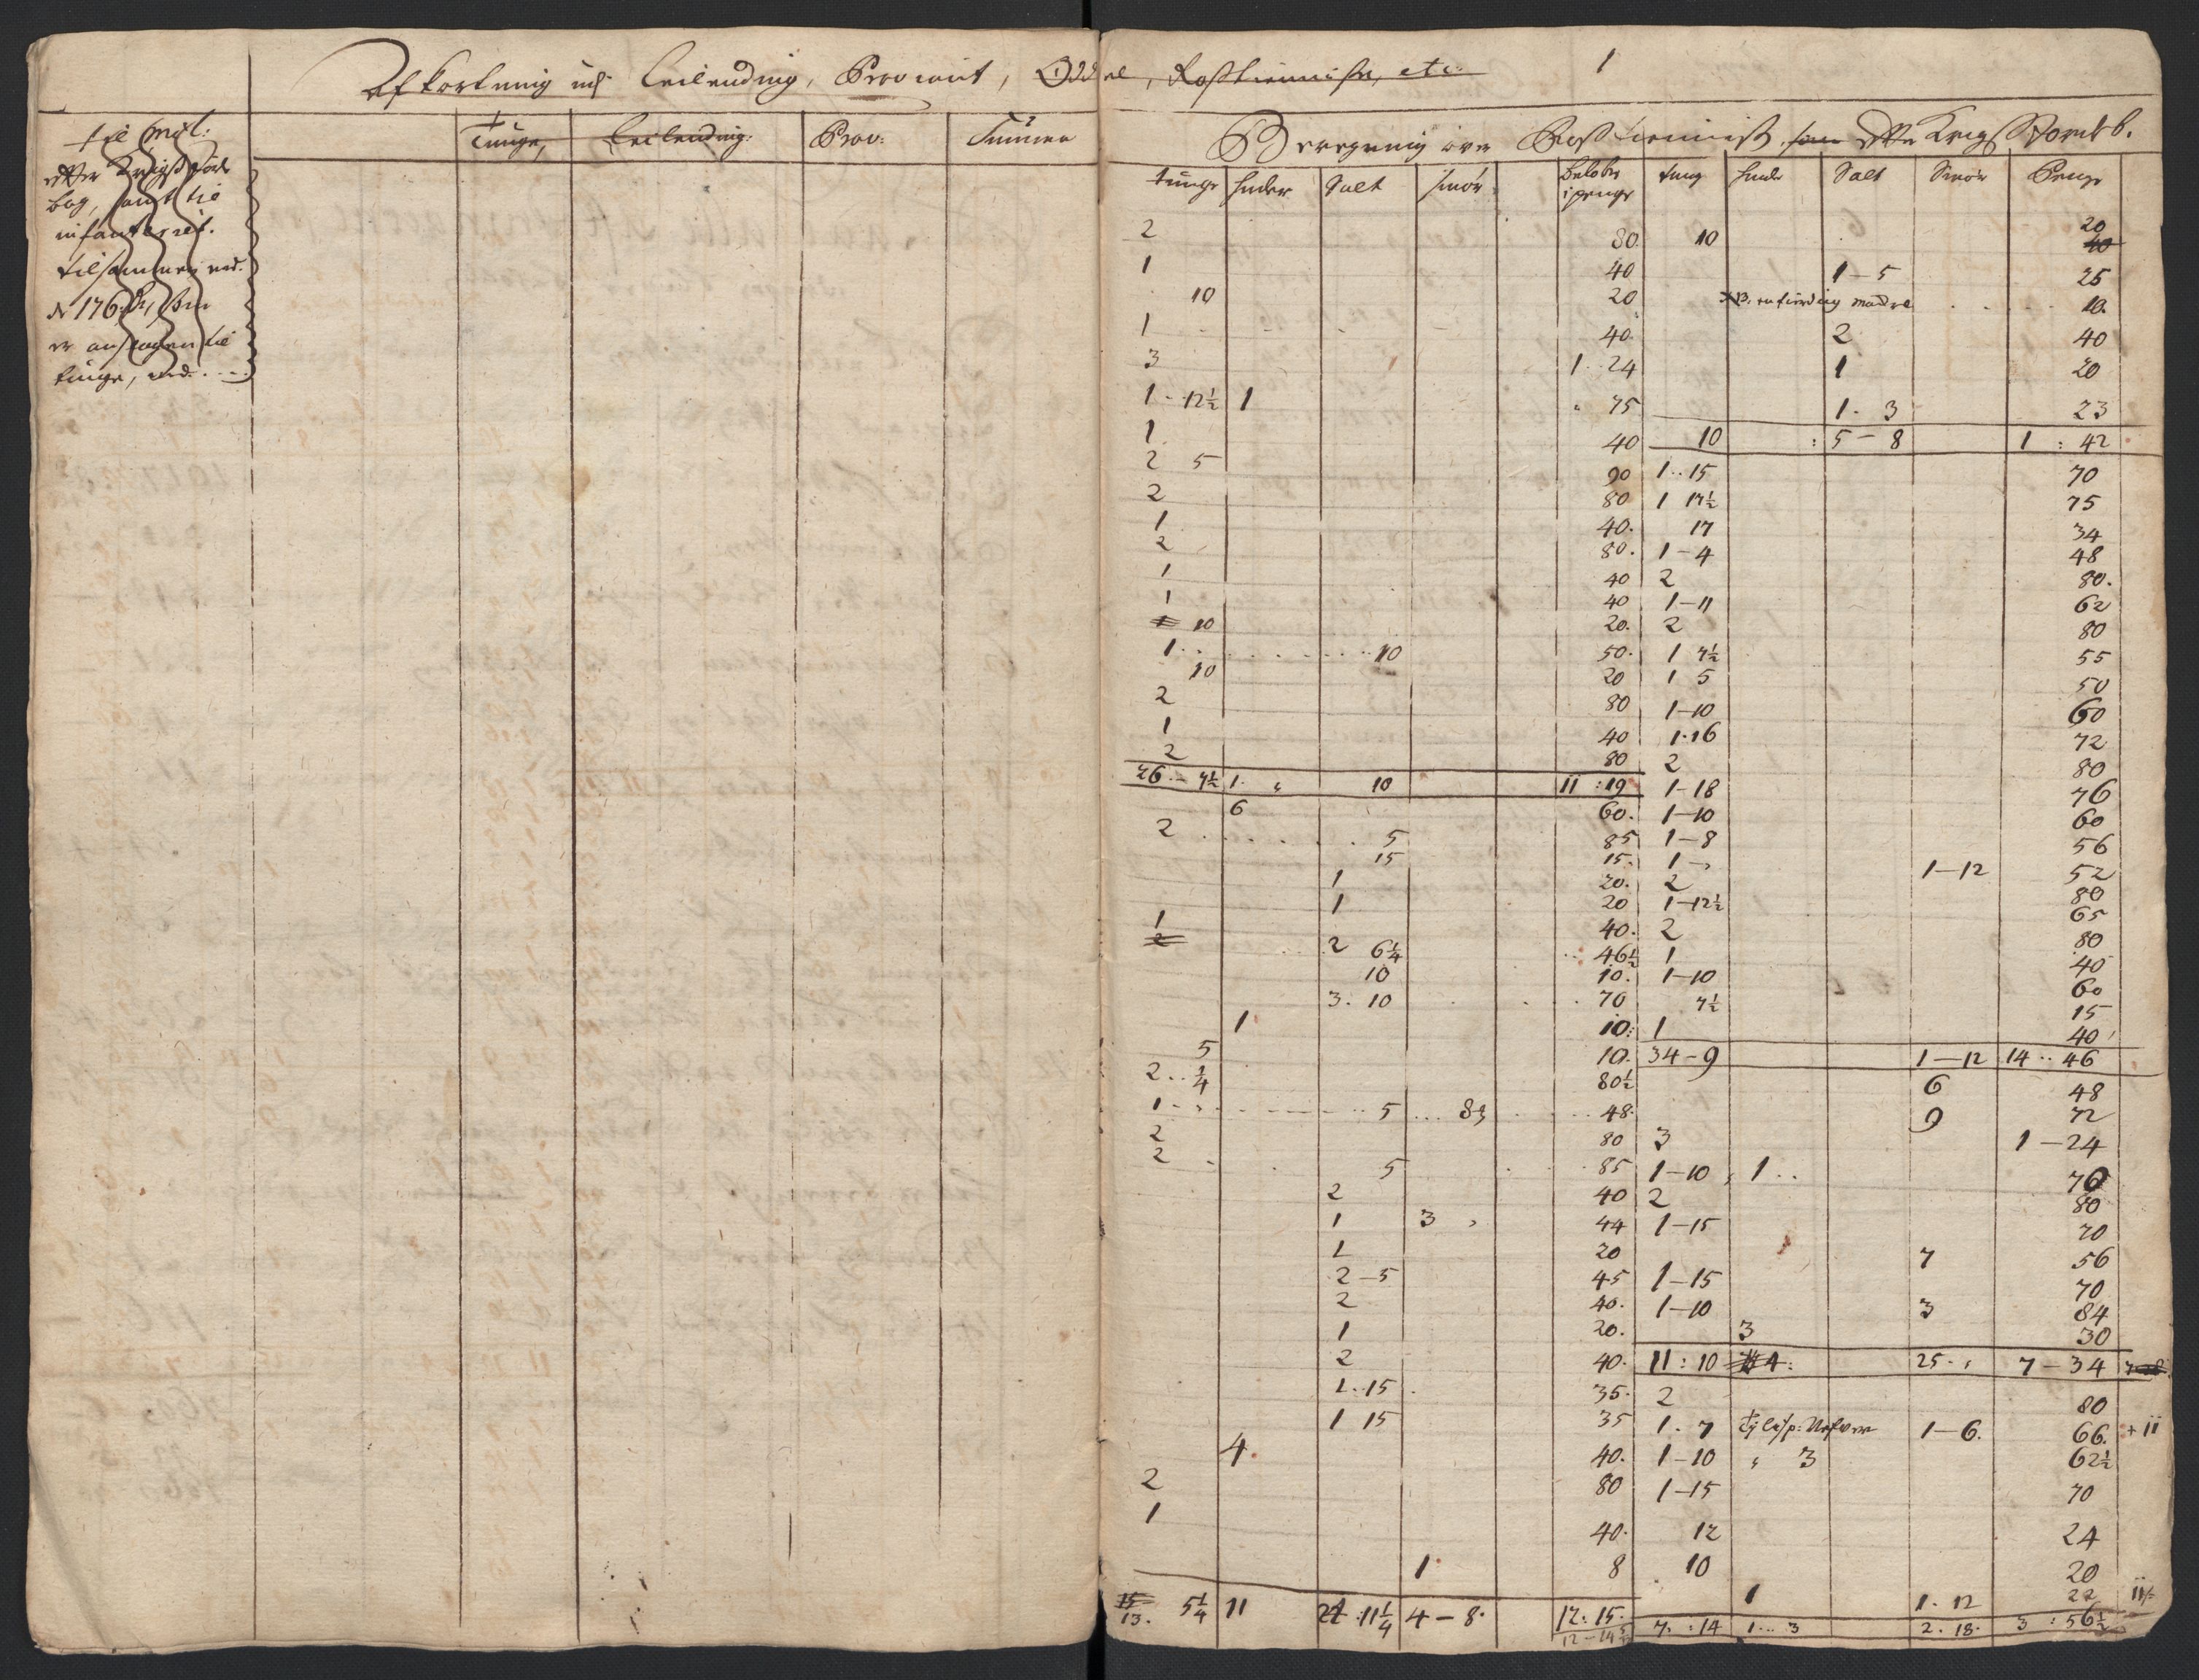 Afkortning udj Leilending, Proviant, Odd el, Rostienniste, etc: 1
Tunge, Leilending: Prov: Summa
bog, samt til
infanteriet.
tilsammen med.
N 176
er ansl til
tunge, med. . .
Beregning over Rostienniste som efter Krigs Jordb.
tunge huder Salt smör belöber i penge tung huder Salt Smör Penge
2 80. 10 20
40
1 40 1-5 25
10 20 10.
1 40. 2 40
3 1..24 1 20
1-12½ 1 75 1. 3 23
1 40 10 5-8 1:42
2 5 90 1..15 70
2 80 1 17½ 75
1 40. 17 34
2 80. 1-4 48
1 40 2 80.
1 40 1-11 62
1 10 20. 2 80
1 10 50. 1 7½ 55
10 20 1 5 50
2 80 1-10 60
1 40 1.16 72
2 80 2 80
26-7½ 1. 10 11:19 1-18 76
6 60. 1-10 60
2 5 85 1-8 56
15 15. 1 1-12 52
1 20. 2 80
1 20 1-12½ 65
1 40. 2 80
2 2 6¼ 46½ 1 40
10 10. 1-10 60
3. 10 70 7½ 15
1 10: 1 40
5 10. 34-9 1-12 14..46
2..¼ 80½ 6 48
1 5 8 48. 9 72
2 80 3 1-24
2 5 85 1-10 1.. 70
2 40 2 80
1 3 44 1-15 70
1 20 7 56
2-5 45 1-15 70
2 40. 1-10 3 84
1 20. 3 30
2 40. 11:10 4: 25 7-34
1..15 35. 2 80
1 15 35 1. 7 1-6. 66. +11
4. 40. 1-10 3 62½
2 80 1-15 70
1 40. 12 24
1 8 10 20
1 1. 12 22
15
13. 5¼ 11 21:11¼ 4-8. 12:15. 7.:14 1...3 2. 18. 3:56½